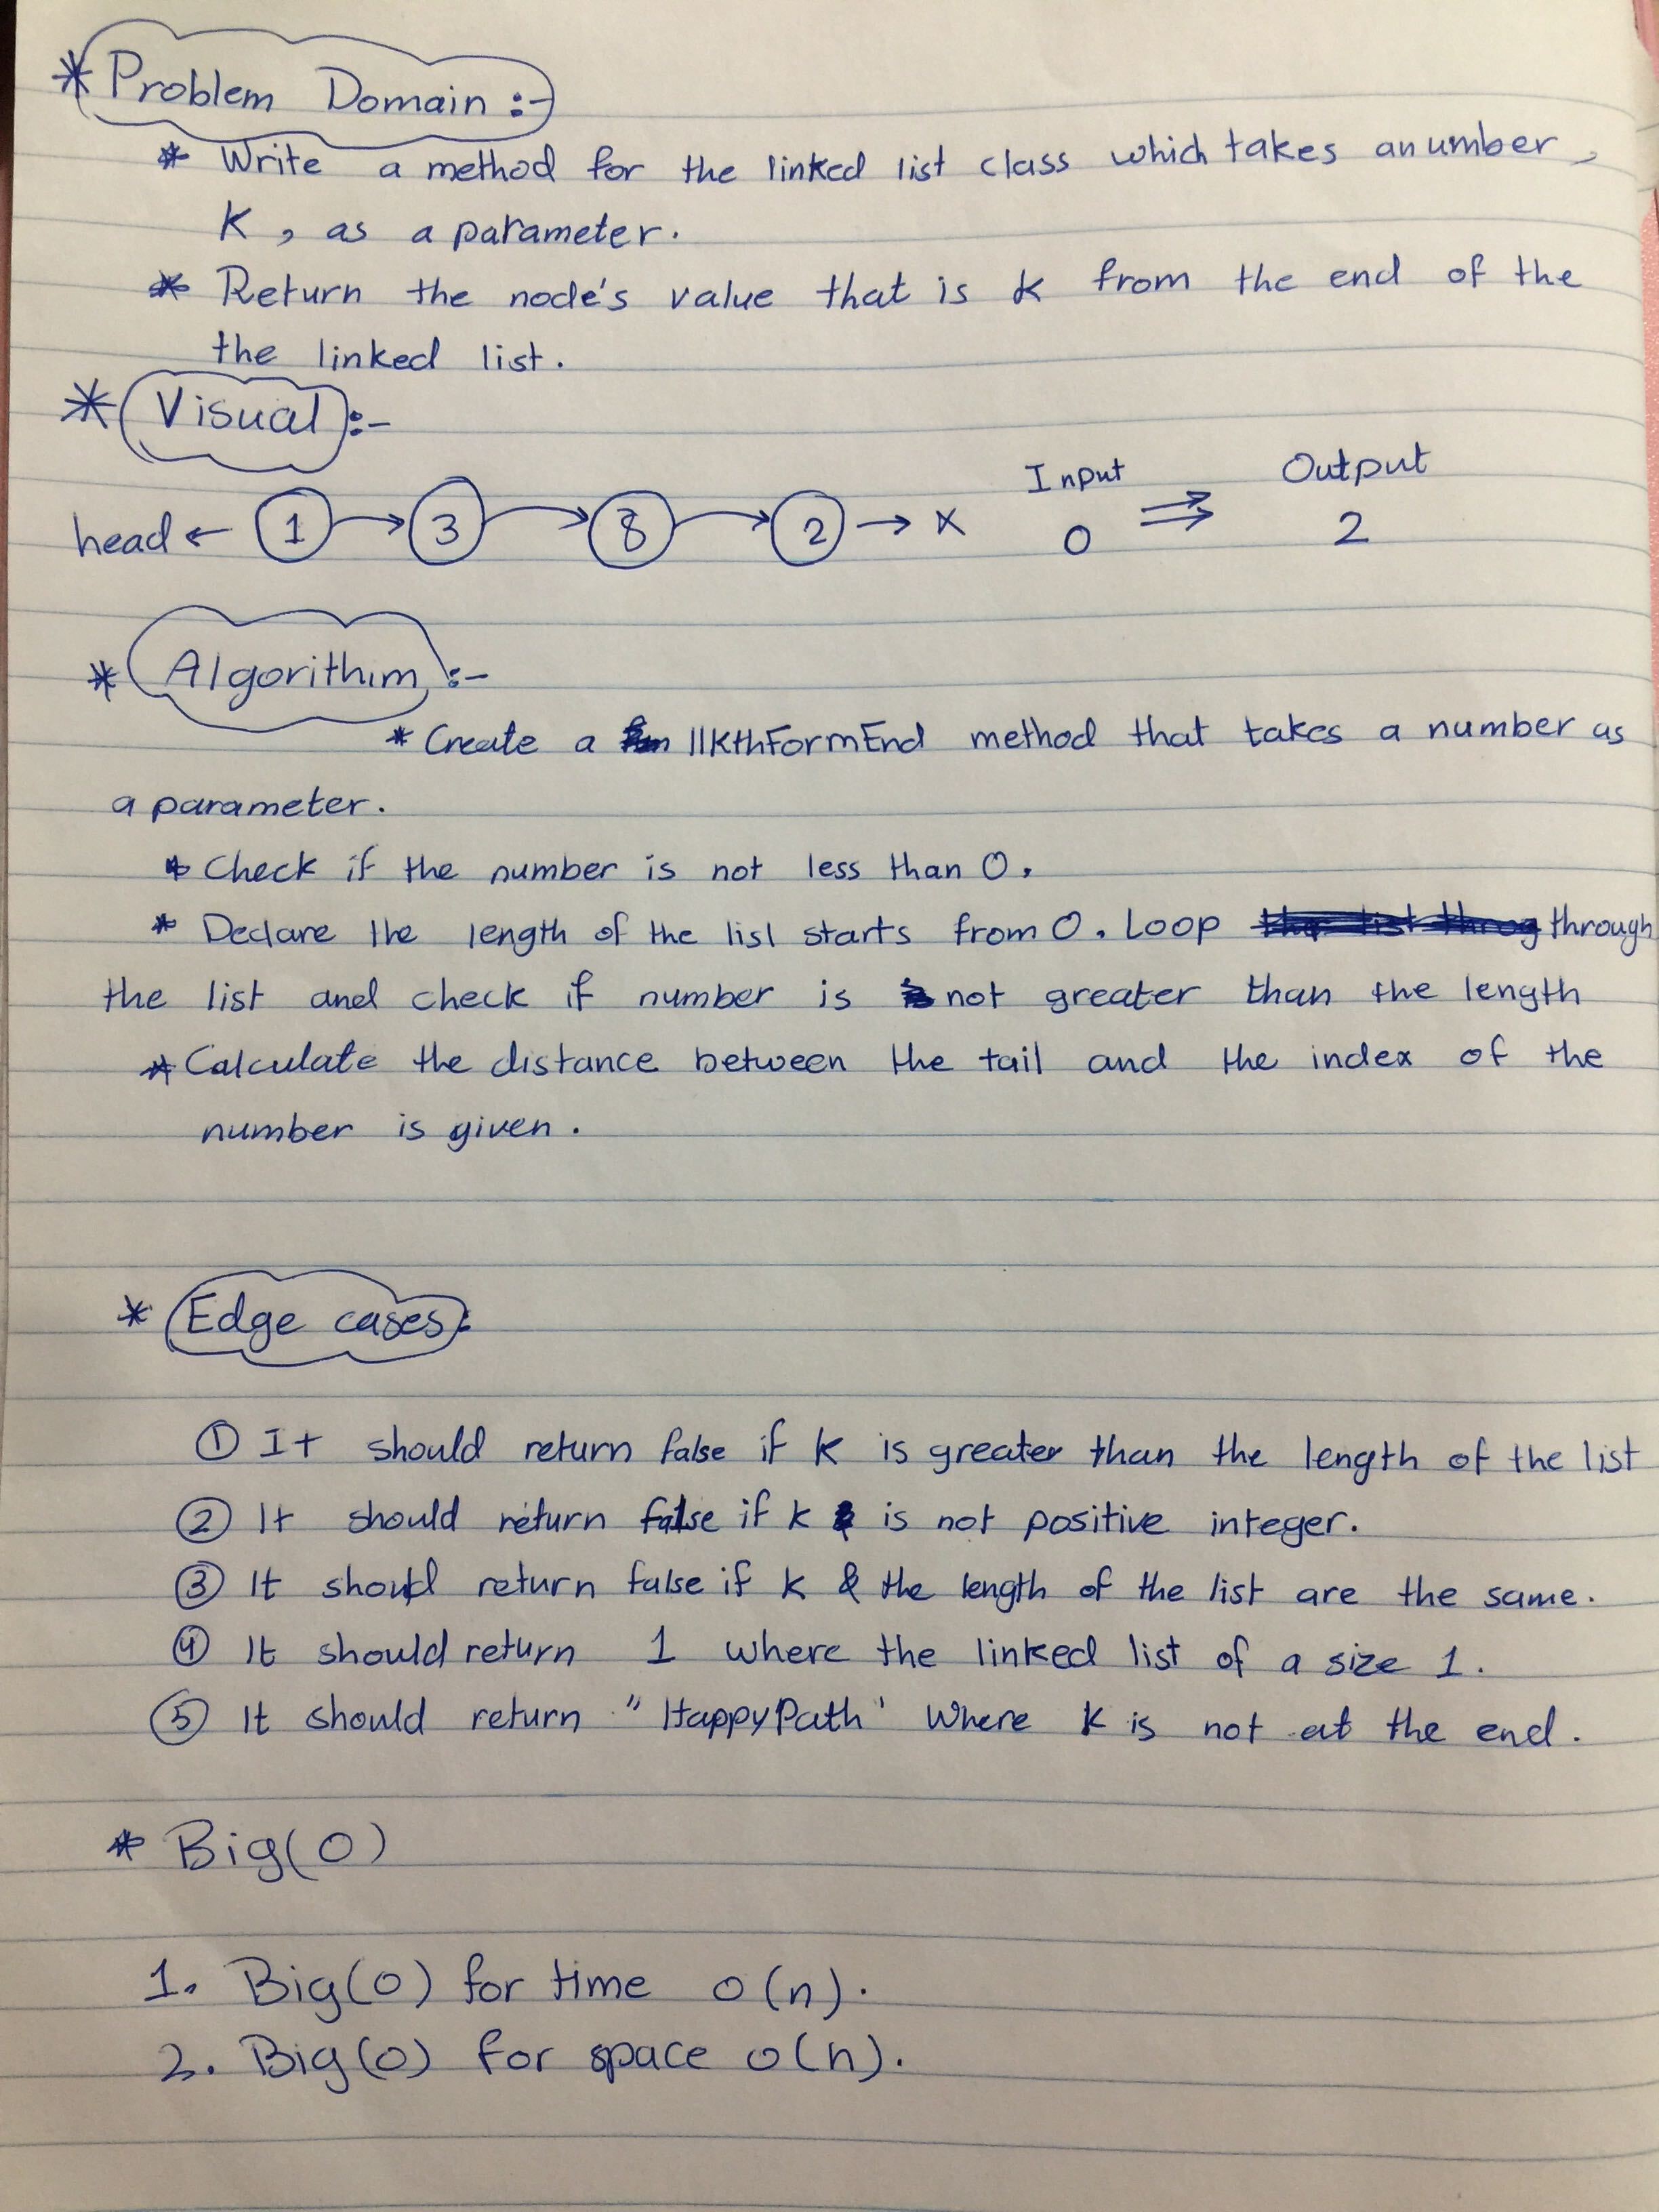 * Problem Domain :-
* Write a method for the linked list class which takes a number,
K, as a parameter.
* Return the node's value that is k from the end of the
the linked list.
* Visual :-
head ← 1 → 3 → 8 → 2 → X Input 0 ⇒ Output 2
* Algorithim :-
* Create a llKthFormEnd method that takes a number as
a parameter.
* Check if the number is not less than 0.
* Declare the length of the list starts from 0. Loop through
the list and check if number is not greater than the length
* Calculate the distance between the tail and the index of the
number is given.
* Edge cases:
① It should return false if k is greater than the length of the list
② It should return false if k is not positive integer.
③ It should return false if k & the length of the list are the same.
④ It should return 1 where the linked list of a size 1.
⑤ It should return "HappyPath' Where k is not at the end.
* Big(O)
1. Big(O) for time o(n).
2. Big(O) for space o(n).